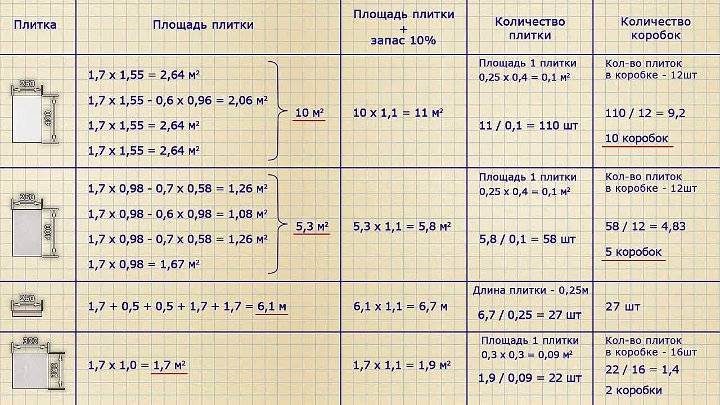 Плитка
Площадь плитки
Площадь плитки
+
запас 10%
Количество
плитки
Количество
коробок
250
400
1,7 x 1,55 = 2,64 м²
1,7 x 1,55 - 0,6 x 0,96 = 2,06 м²
1,7 x 1,55 = 2,64 м²
1,7 x 1,55 = 2,64 м²
10 м²
10 x 1,1 = 11 м²
Площадь 1 плитки
0,25 x 0,4 = 0,1 м²
11 / 0,1 = 110 шт
Кол-во плиток
в коробке - 12шт
110 / 12 = 9,2
10 коробок
250
400
1,7 x 0,98 - 0,7 x 0,58 = 1,26 м²
1,7 x 0,98 - 0,6 x 0,98 = 1,08 м²
1,7 x 0,98 - 0,7 x 0,58 = 1,26 м²
1,7 x 0,98 = 1,67 м²
5,3 м²
5,3 x 1,1 = 5,8 м²
Площадь 1 плитки
0,25 x 0,4 = 0,1 м²
5,8 / 0,1 = 58 шт
Кол-во плиток
в коробке - 12шт
58 / 12 = 4,83
5 коробок
250
1,7 + 0,5 + 0,5 + 1,7 + 1,7 = 6,1 м
6,1 x 1,1 = 6,7 м
Длина плитки - 0,25м
6,7 / 0,25 = 27 шт
27 шт
300
300
1,7 x 1,0 = 1,7 м²
1,7 x 1,1 = 1,9 м²
Площадь 1 плитки
0,3 x 0,3 = 0,09 м²
1,9 / 0,09 = 22 шт
Кол-во плиток
в коробке - 16шт
22 / 16 = 1,4
2 коробки